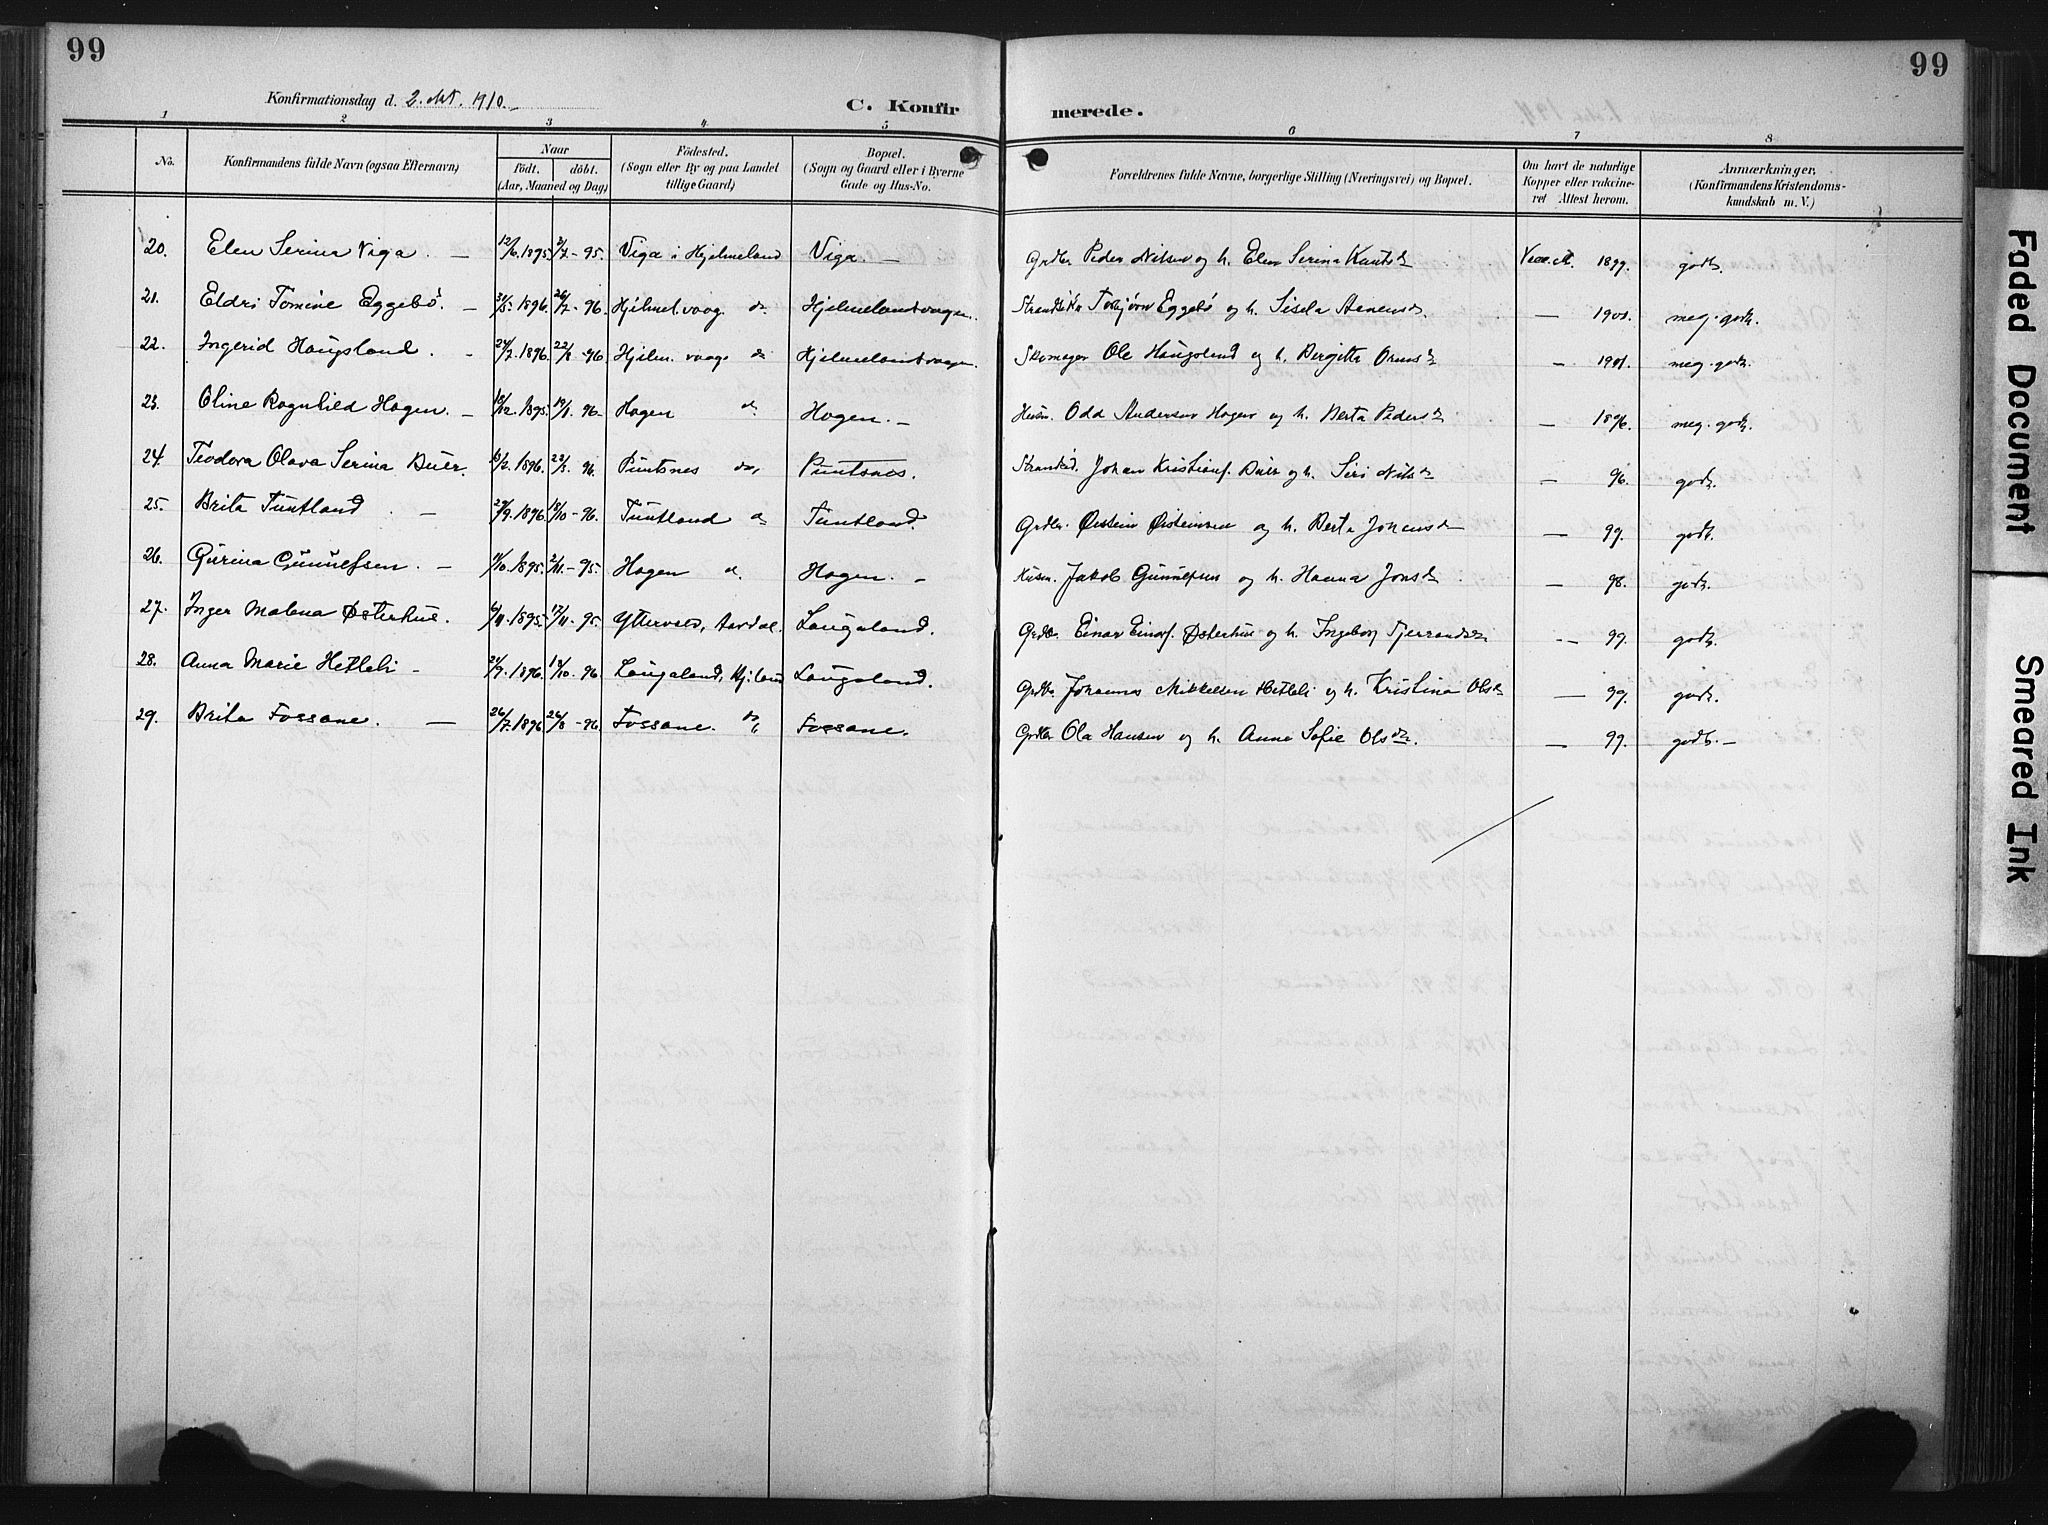 99
99
Konfirmationsdag d. 2. okt. 1910.
C. Konfirmerede.
1 2 3 4 5 6 7 8
No. Konfirmandens fulde Navn (ogsaa Efternavn) Naar födt. döbt. (Aar, Maaned og Dag) Födested. (Sogn eller By og paa Landet tillige Gaard) Bopæl. (Sogn og Gaard eller i Byerne Gade og Hus-No. Forældrenes fulde Navne, borgerlige Stilling (Næringsvei) og Bopæl. Om havt de naturlige Kopper eller vakcineret Attest herom. Anmærkninger, (Konfirmandens Kristendomskundskab m. V.)
20. Elen Serina Viga. — 12/6. 1895. 3/7 - 95. Viga i Hjelmeland Viga. — Grdbr. Peder Nilsen og h. Elen Serina Knutsd. 1899. godt.
21. Eldri Tomine Eggebö. — 31/5. 1896. 26/7 - 96. Hjelmel.vaag do Hjelmelandsvaagen. Torbjörn Eggebö og h. Sisela — 1901. meg. godt.
22. Ingerid Haugsland. - 24/7. 1896. 22/8 - 96. Hjelm. vaage do Hjelmelandsvaagen. Skomager Ole Haugsland og h. Bergitta Ormsd. — 1901. meg. godt.
23. Oline Ragnhild Hagen. — 18/12. 1895. 19/1. 96. Hagen do Hagen. — Husm. Odd Andersen Hagen og h. Berta Pedersd. — 1896. meg. godt.
24. Teodora Olava Serina Buer. 13/2. 1896. 22/3. 96. Puntsnes do, Puntsnes. Strandsid. Johan Kristians. Buer og h. Siri Nilsd. — 96. godt.
25. Brita Tuntland. — 29/9. 1896. 18/10 - 96. Tuntland do Tuntland. Grdbr. Østein Østeinsen og h. Berta Johansd. — 99. godt.
26. Gurina Gunnefsen. — 11/10. 1895. 2/11 - 95. Hagen d. Hagen. — Husm. Jakob Gunnefsen og h. Hanna Jonsd. — 98. godt.
27. Inger Malena Østerhus. 6/11. 1895. 17/11 - 95. Aardal. Laugaland. Grdbr. Einar Einars. Østerhus og h. Ingeborg Tjerrandsd. — 99. godt.
28. Anna Marie Hetleli — 21/9. 1896. 18/10. 96. Laugaland, Hjelml. Laugaland. Grdbr. Johannes Mikkelsen Hetleli og h. Kristina Olsd. — 99. godt.
29. Brita Fossane. — 26/7. 1896 26/8 - 96. Fossane. do, Fossane. Grdbr. Ola Hansen og h. Anna Sofie Olsdr. — 99. godt. —
Faded Document
Smeared Ink